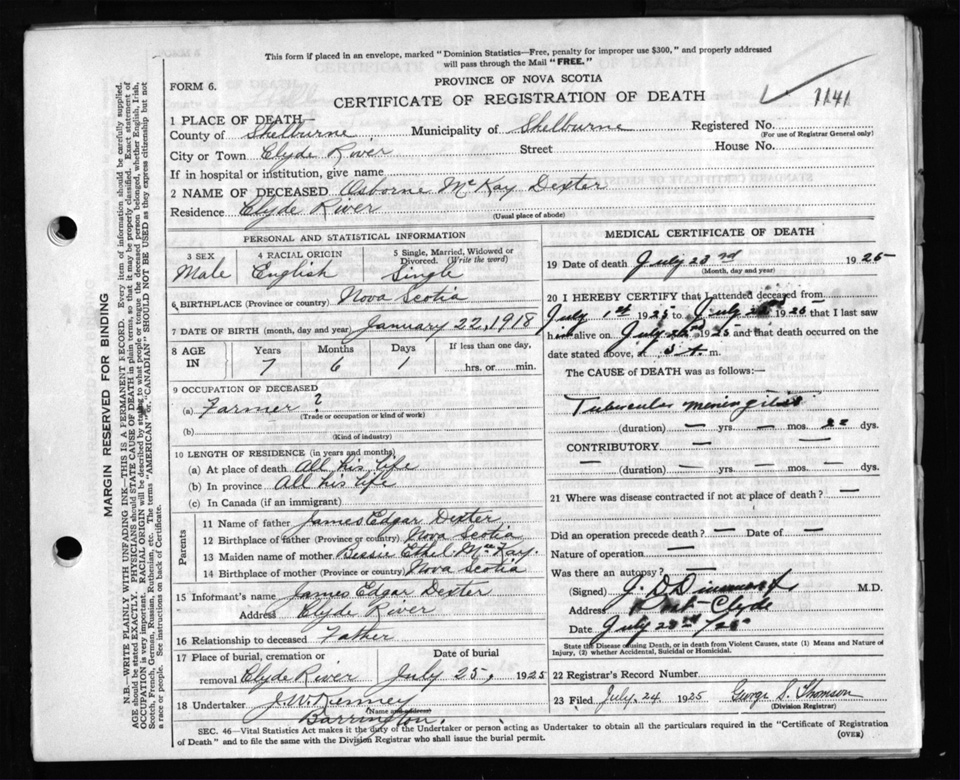 This form if placed in an envelope, marked "Dominion Statistics—Free, penalty for improper use $300," and properly addressed
will pass through the Mail "FREE."
FORM 6.
PROVINCE OF NOVA SCOTIA
CERTIFICATE OF REGISTRATION OF DEATH
1141
1 PLACE OF DEATH—
County of Shelburne Municipality of Shelburne Registered No.
(For use of Registrar General only)
City or Town Clyde River Street House No.
If in hospital or institution, give name
2 NAME OF DECEASED Osborne McKay Dexter
Residence Clyde River
(Usual place of abode)
MARGIN RESERVED FOR BINDING
N.B.—WRITE PLAINLY WITH UNFADING INK—THIS IS A PERMANENT RECORD. Every item of information should be carefully supplied.
AGE should be stated EXACTLY. PHYSICIANS should STATE CAUSE OF DEATH in plain terms, so that it may be properly classified. Exact statement of
OCCUPATION is very important. RACIAL ORIGIN will be described by stating to what people or tongue the deceased person belonged, whether English, Irish,
Scotch, French, German, Russian, Ruthenian, etc. The terms "AMERICAN" or "CANADIAN" SHOULD NOT BE USED as they express citizenship but not
a race or people. See instructions on back of Certificate.
PERSONAL AND STATISTICAL INFORMATION
3 SEX 4 RACIAL ORIGIN 5 Single, Married, Widowed or
Divorced. (Write the word)
Male English Single
6 BIRTHPLACE (Province or country) Nova Scotia
7 DATE OF BIRTH (month, day and year) January 22, 1918
8 AGE IN Years Months Days If less than one day,
7 6 1 hrs. or min.
9 OCCUPATION OF DECEASED
(a) Farmer ?
(Trade or occupation or kind of work)
(b)
(Kind of industry)
10 LENGTH OF RESIDENCE (in years and months)
(a) At place of death All his life
(b) In province All his life
(c) In Canada (if an immigrant)
Parents
11 Name of father James Edgar Dexter
12 Birthplace of father (Province or country) Nova Scotia
13 Maiden name of mother Bessie Ethel McKay.
14 Birthplace of mother (Province or country) Nova Scotia
15 Informant's name James Edgar Dexter
Address Clyde River
16 Relationship to deceased Father
17 Place of burial, cremation or Date of burial
removal Clyde River July 25, 1925
18 Undertaker J. W. Kenney
(Name and address)
Barrington.
MEDICAL CERTIFICATE OF DEATH
19 Date of death July 23rd 1925
(Month, day and year)
20 I HEREBY CERTIFY that I attended deceased from
July 1st 1925 to July 1925 that I last saw
him alive on July 1925 and that death occurred on
date stated above, at m.
The CAUSE of DEATH was as follows:—
Tubercular meningitis
(duration) — yrs. — mos. 22 dys.
CONTRIBUTORY — —
— (duration) — yrs. — mos. — dys.
21 Where was disease contracted if not at place of death? —
Did an operation precede death? — Date of —
Nature of operation —
Was there an autopsy? —
(Signed) J. D. M.D.
Address Port-Clyde
Date July 23rd/25
State the Disease causing Death, or in death from Violent Causes, state (1) Means and Nature of
Injury, (2) whether Accidental, Suicidal or Homicidal.
22 Registrar's Record Number
23 Filed July, 24 1925 George S. Thomson
(Division Registrar)
SEC. 46—Vital Statistics Act makes it the duty of the Undertaker or person acting as Undertaker to obtain all the particulars required in the "Certificate of Registration
of Death" and to file the same with the Division Registrar who shall issue the burial permit.
(OVER)